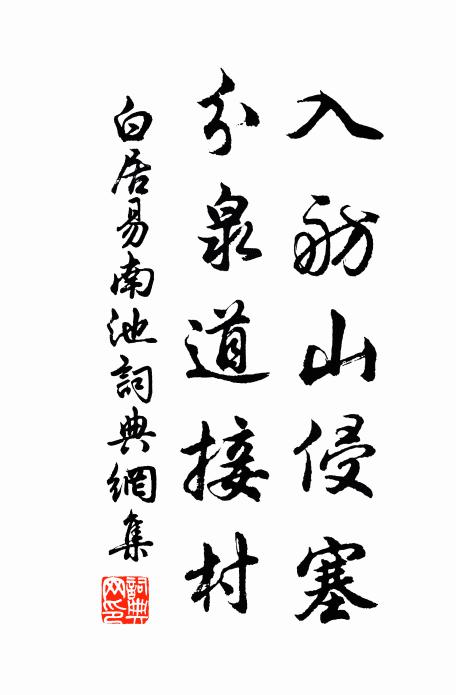 入舫山侵塞
分泉道接村
白居易南池詞典網集
詞典
网印